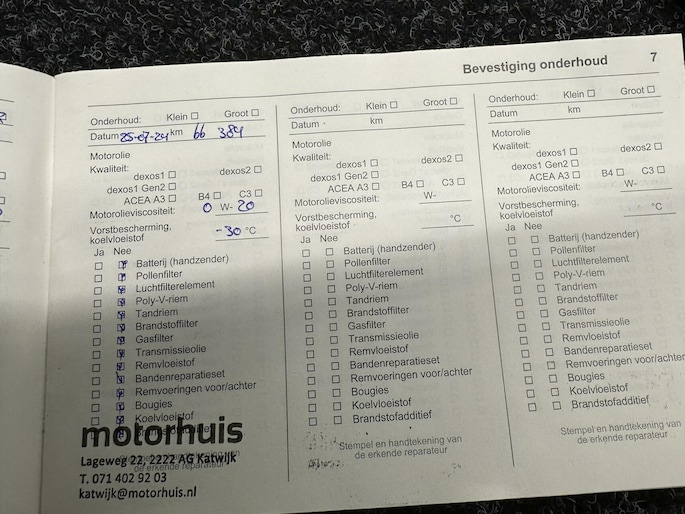 Bevestiging onderhoud 7
Onderhoud: Klein Groot
Datum 25-07-24 km 66 384
Motorolie
Kwaliteit:
dexos1 dexos2
dexos1 Gen2
ACEA A3 B4 C3
Motorolieviscositeit: 0 W- 20
Vorstbescherming,
koelvloeistof -30 °C
Ja Nee
Batterij (handzender)
Pollenfilter
Luchtfilterelement
Poly-V-riem
Tandriem
Brandstoffilter
Gasfilter
Transmissieolie
Remvloeistof
Bandenreparatieset
Remvoeringen voor/achter
Bougies
Koelvloeistof
motorhuis
Lageweg 22, 2222 AG Katwijk
de erkende reparateur
T. 071 402 92 03
katwijk@motorhuis.nl
Onderhoud: Klein Groot
Datum km
Motorolie
Kwaliteit:
dexos1 dexos2
dexos1 Gen2
ACEA A3 B4 C3
Motorolieviscositeit: W-
Vorstbescherming,
koelvloeistof °C
Ja Nee
Batterij (handzender)
Pollenfilter
Luchtfilterelement
Poly-V-riem
Tandriem
Brandstoffilter
Gasfilter
Transmissieolie
Remvloeistof
Bandenreparatieset
Remvoeringen voor/achter
Bougies
Koelvloeistof
Brandstofadditief
Stempel en handtekening van
de erkende reparateur
Onderhoud: Klein Groot
Datum km
Motorolie
Kwaliteit:
dexos1 dexos2
dexos1 Gen2
ACEA A3 B4 C3
Motorolieviscositeit: W-
Vorstbescherming,
koelvloeistof °C
Ja Nee
Batterij (handzender)
Pollenfilter
Luchtfilterelement
Poly-V-riem
Tandriem
Brandstoffilter
Gasfilter
Transmissieolie
Remvloeistof
Bandenreparatieset
Remvoeringen voor/achter
Bougies
Koelvloeistof
Brandstofadditief
Stempel en handtekening van
de erkende reparateur